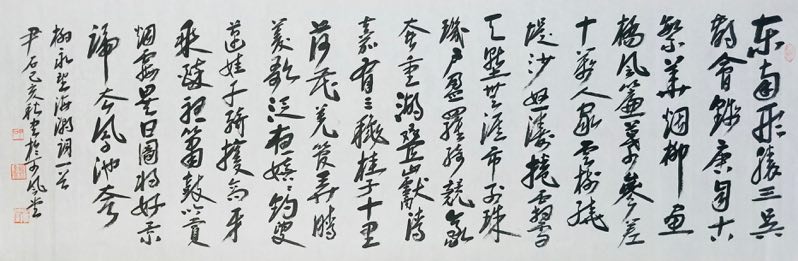 东南形胜三吴
都會钱唐自古
繁華烟柳画
橋风簾翠幕参差
十万人家云树绕
堤沙怒涛捲霜雪
天堑無涯市列珠
玑户盈羅绮競豪
奢重湖叠巘清
嘉有三秋桂子十里
荷花羌管弄晴
菱歌泛夜嬉嬉钓叟
莲娃千骑擁高牙
乘醉听箫鼓吟赏
烟霞異日图将好景
归去凤池夸
柳永望海潮词一首
尹石己亥秋書於可风堂